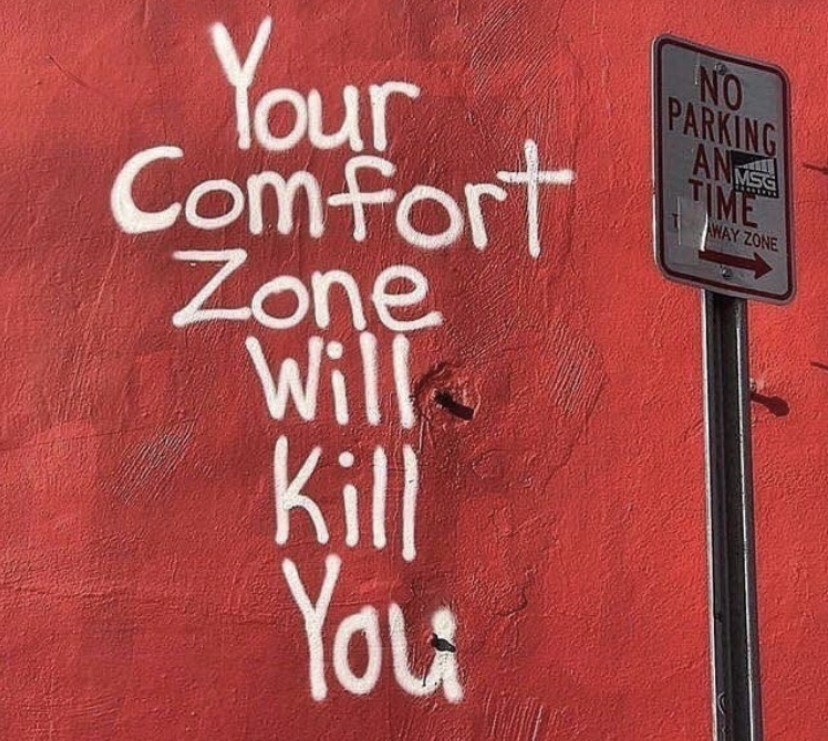 Your
Comfort
Zone
Will
Kill
You
NO
PARKING
AN
MSG
TIME
AWAY ZONE